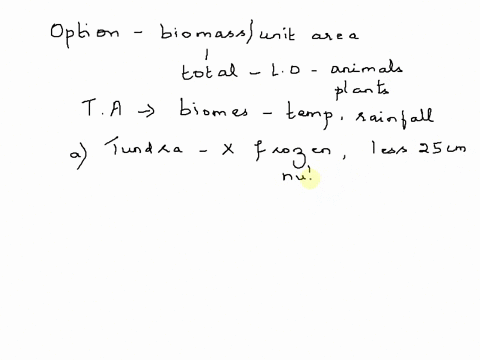 Option - biomass/unit area
total - L.O - animals
plants
T.A → biomes - temp. rainfall
a) Tundra - x frozen, less 25cm
nu!